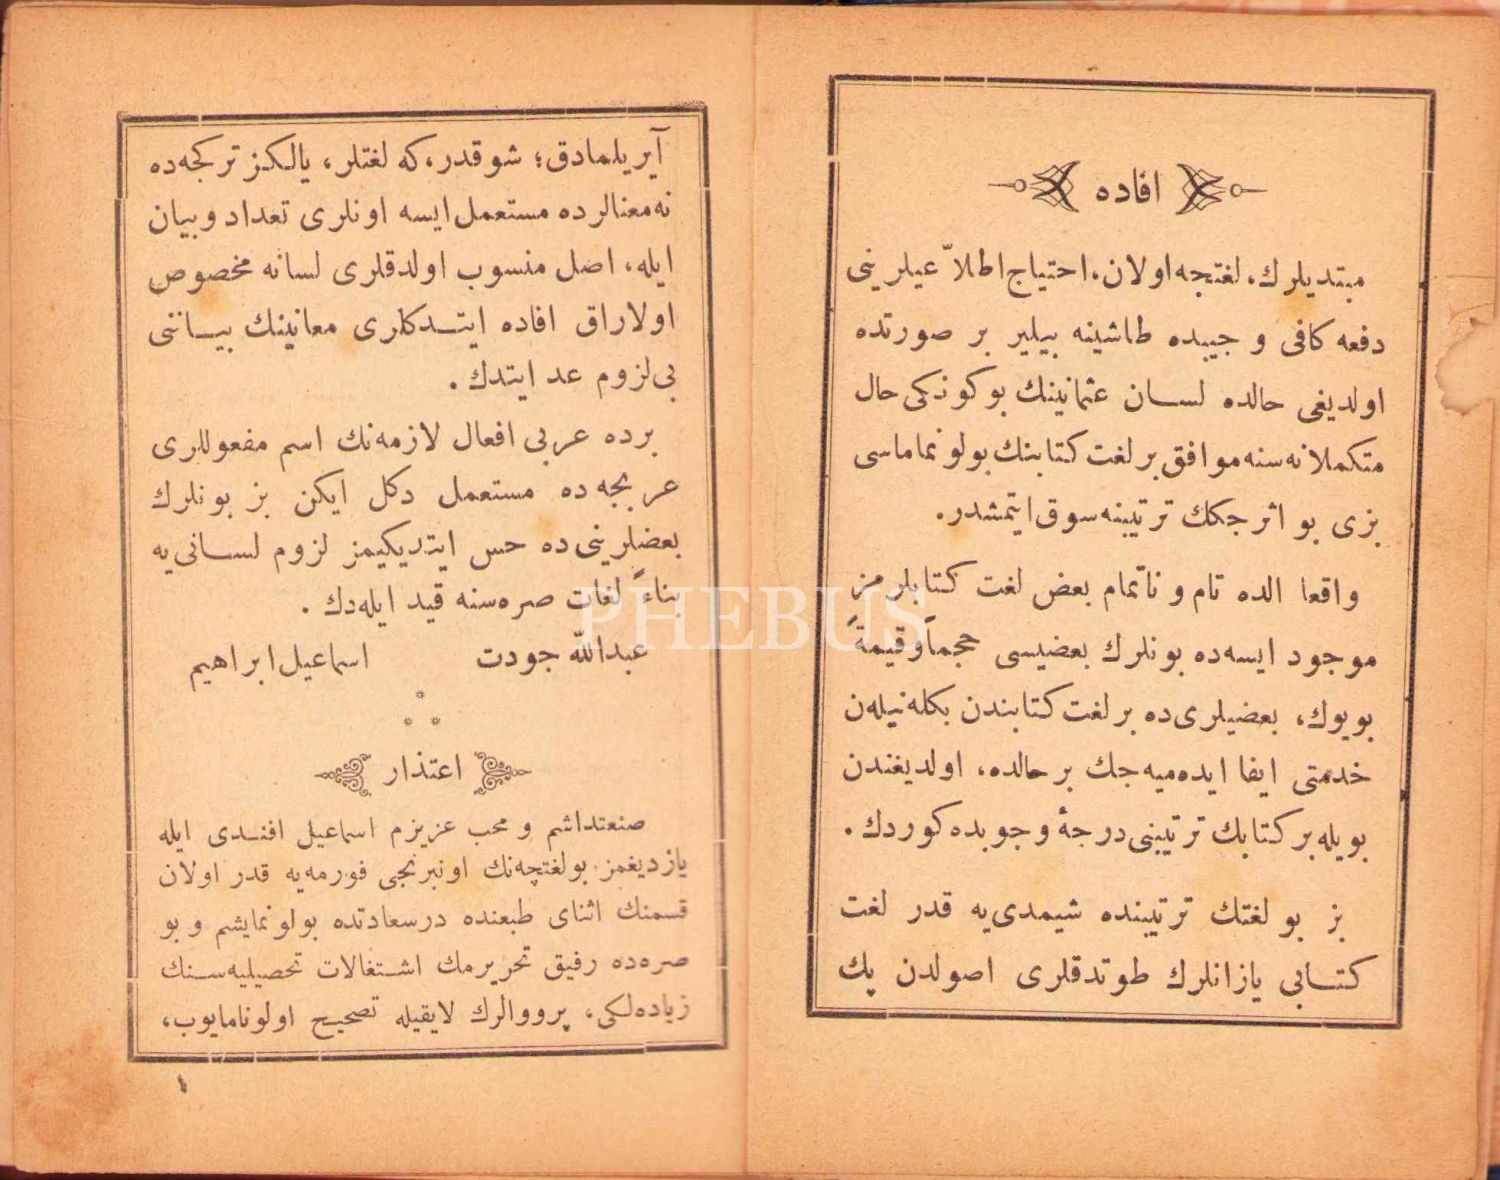 افاده
مبتدیلرك، لغتجه اولان، احتیاج اطلاّعیلرینی
دفعه كافی و جیبده طاشینه بیلیر بر صورتده
اولدیغی حالده لسان عثمانینك بوكونكی حال
متكملانه‌سنه موافق بر لغت كتابنك بولونماماسی
بزی بو اثرجكك ترتیبنه سوق ایتمشدر.
واقعا الده تام و ناتمام بعض لغت كتابلرمز
موجود ایسه‌ده بونلرك بعضیسی حجماً و قیمةً
بویوك، بعضیلری‌ده بر لغت كتابندن بكله‌نیله‌ن
خدمتی ایفا ایده‌میه‌جك بر حالده، اولدیغندن
بویله بر كتابك ترتیبنی درجهٔ وجوبده كوردك.
بز بو لغتك ترتیبنده شیمدی‌یه قدر لغت
كتابی یازانلرك طوتدقلری اصولدن پك
آیریلمادق؛ شو قدر، كه لغتلر، یالكز تركجه‌ده
نه معنالرده مستعمل ایسه اونلری تعداد و بیان
ایله، اصل منسوب اولدقلری لسانه مخصوص
اولاراق افاده ایتدكلری معانینك بیاننی
بی‌لزوم عد ایتدك.
برده عربی افعال لازمه‌نك اسم مفعوللری
عربجه‌ده مستعمل دكل ایكن بز بونلرك
بعضلرینی‌ده حس ایتدیكیمز لزوم لسانی‌یه
بناءً لغات صره‌سنه قید ایله‌دك.
عبدالله جودت اسماعیل ابراهیم
اعتذار
صنعتداشم و محب عزیزم اسماعیل افندی ایله
یازدیغمز بولغتچه‌نك اونبرنجی فورمه‌یه قدر اولان
قسمنك اثنای طبعنده درسعادتده بولونمایشم و بو
صره‌ده رفیق تحریرمك اشتغالات تحصیلیه‌سنك
زیاده‌لكی، پرووالرك لایقیله تصحیح اولونامایوب،
١
PHEBUS